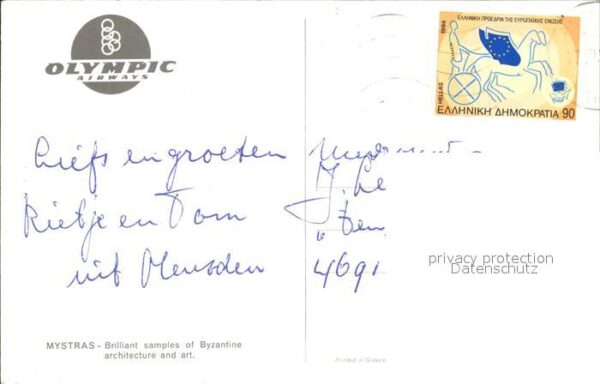 OLYMPIC
AIRWAYS
ΕΛΛΗΝΙΚΗ ΠΡΟΕΔΡΙΑ ΤΗΣ ΕΥΡΩΠΑΪΚΗΣ ΕΝΩΣΗΣ
1994
HELLAS
ΕΛΛΗΝΙΚΗ ΔΗΜΟΚΡΑΤΙΑ 90
Liefs en groeten
Rietje en Tom
uit Heusden
4691
privacy protection
Datenschutz
MYSTRAS - Brilliant samples of Byzantine
architecture and art.
Printed in Greece